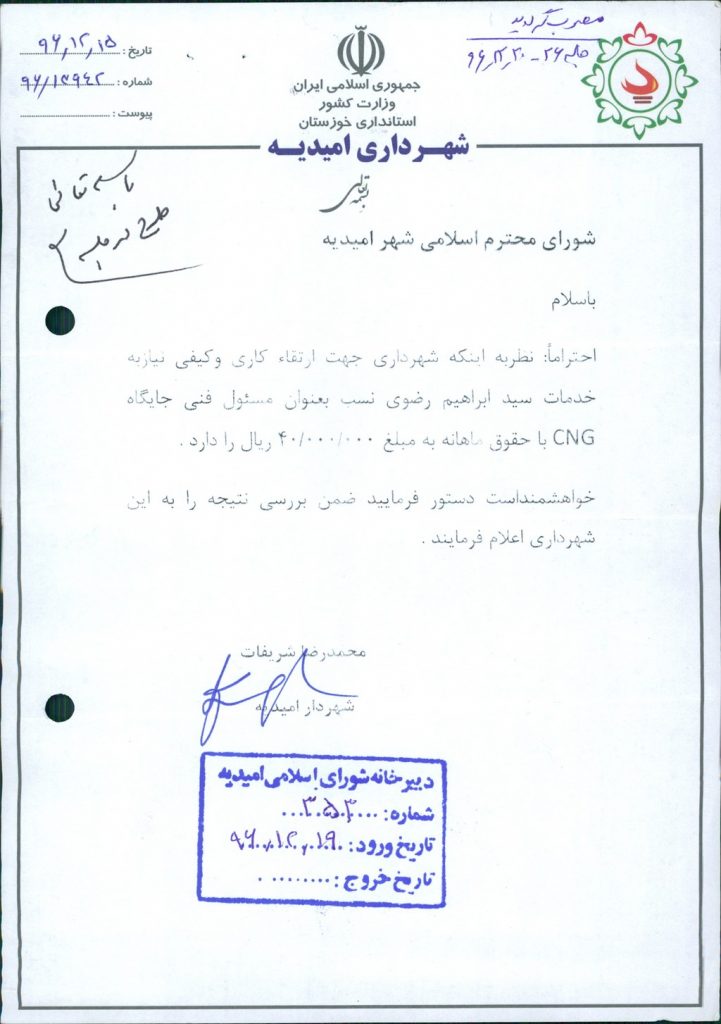 مصوب گردید
جلسه ۲۶ - ۹۶٫۱۲٫۲۰
تاریخ : ۹۶٫۱۲٫۱۵
شماره : ۹۶/۱۳۹۴۲
پیوست :
جمهوری اسلامی ایران
وزارت کشور
استانداری خوزستان
شهرداری امیدیه
بسمه تعالی
باسمه تعالی
طرح در جلسه
شورای محترم اسلامی شهر امیدیه
باسلام
احتراماً: نظربه اینکه شهرداری جهت ارتقاء کاری وکیفی نیازبه
خدمات سید ابراهیم رضوی نسب بعنوان مسئول فنی جایگاه
CNG با حقوق ماهانه به مبلغ ۴۰/۰۰۰/۰۰۰ ریال را دارد .
خواهشمنداست دستور فرمایید ضمن بررسی نتیجه را به این
شهرداری اعلام فرمایند .
محمدرضا شریفات
شهردار امیدیه
دبیرخانه شورای اسلامی امیدیه
شماره: ۳۵۳۰
تاریخ ورود: ۹۶،۱۲،۱۹
تاریخ خروج: